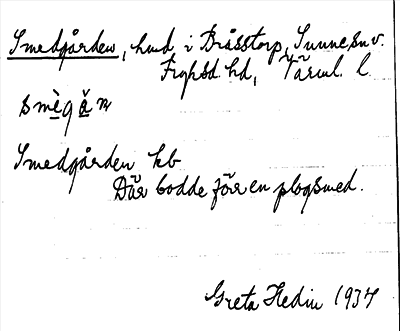 Smedgården, hmd i Bråsstorp, Sunne sn v.
Fryksd. hd, Värml. l.
smègǻn
Smedgården kb
Där bodde förr en plogsmed.
Greta Hedin 1937